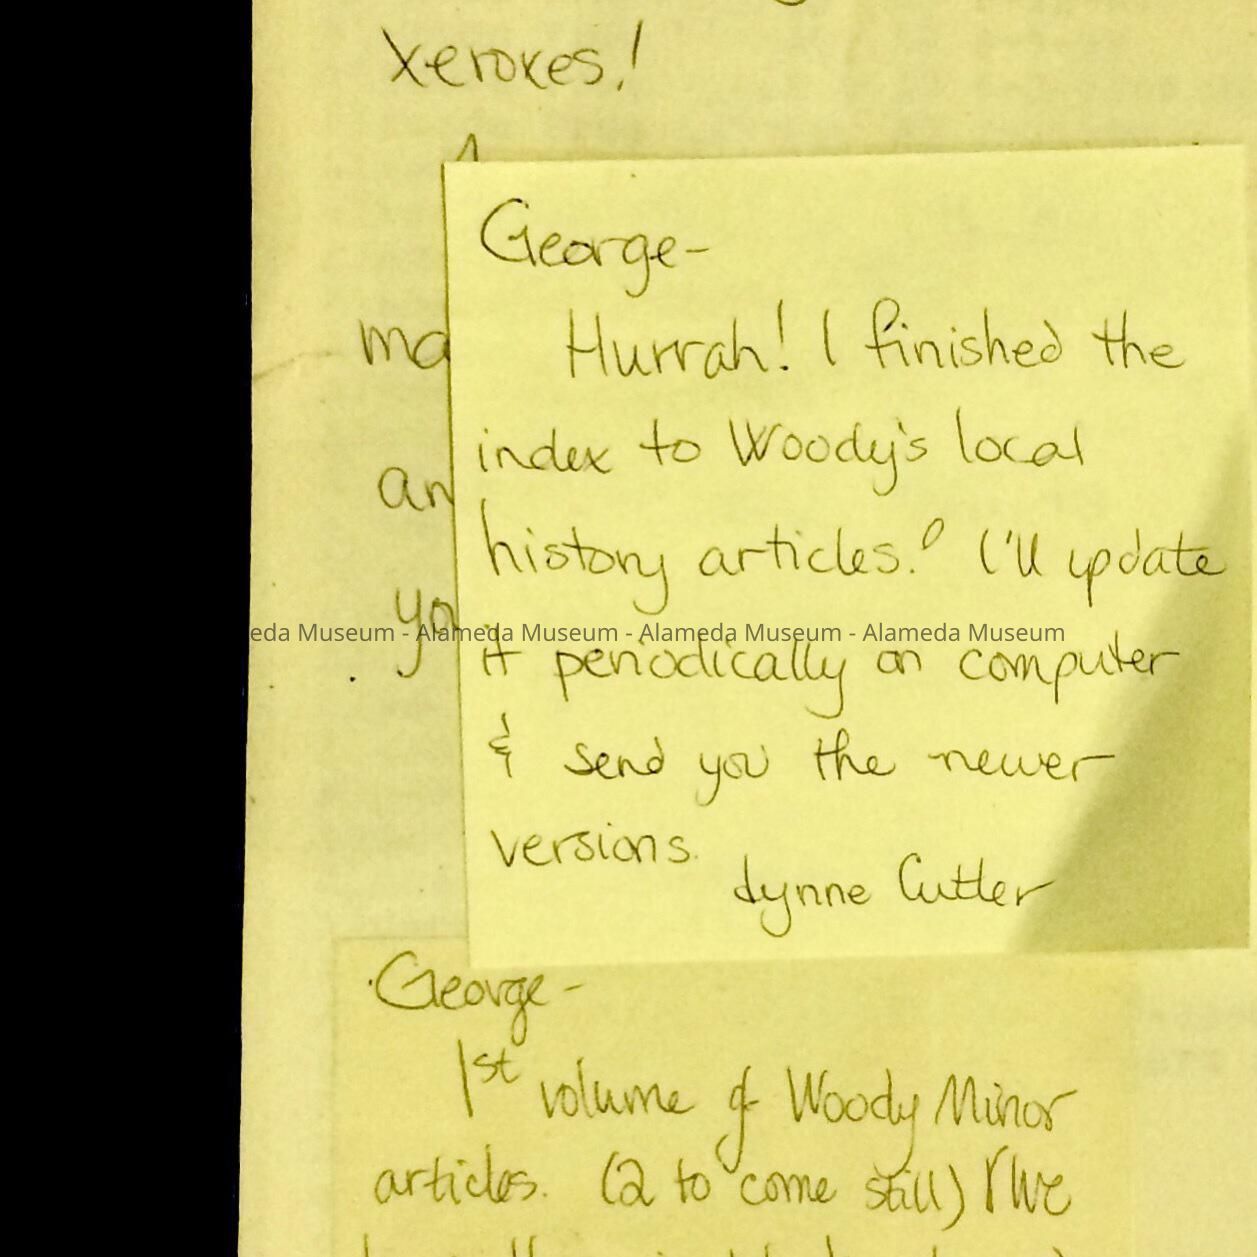 xeroxes!
ma
an
yo
George-
Hurrah! I finished the
index to Woody's local
history articles! I'll update
it periodically on computer
& send you the newer
versions.
Lynne Cutler
eda Museum - Alameda Museum - Alameda Museum - Alameda Museum
George-
1st volume of Woody Minor
articles. (2 to come still) I've